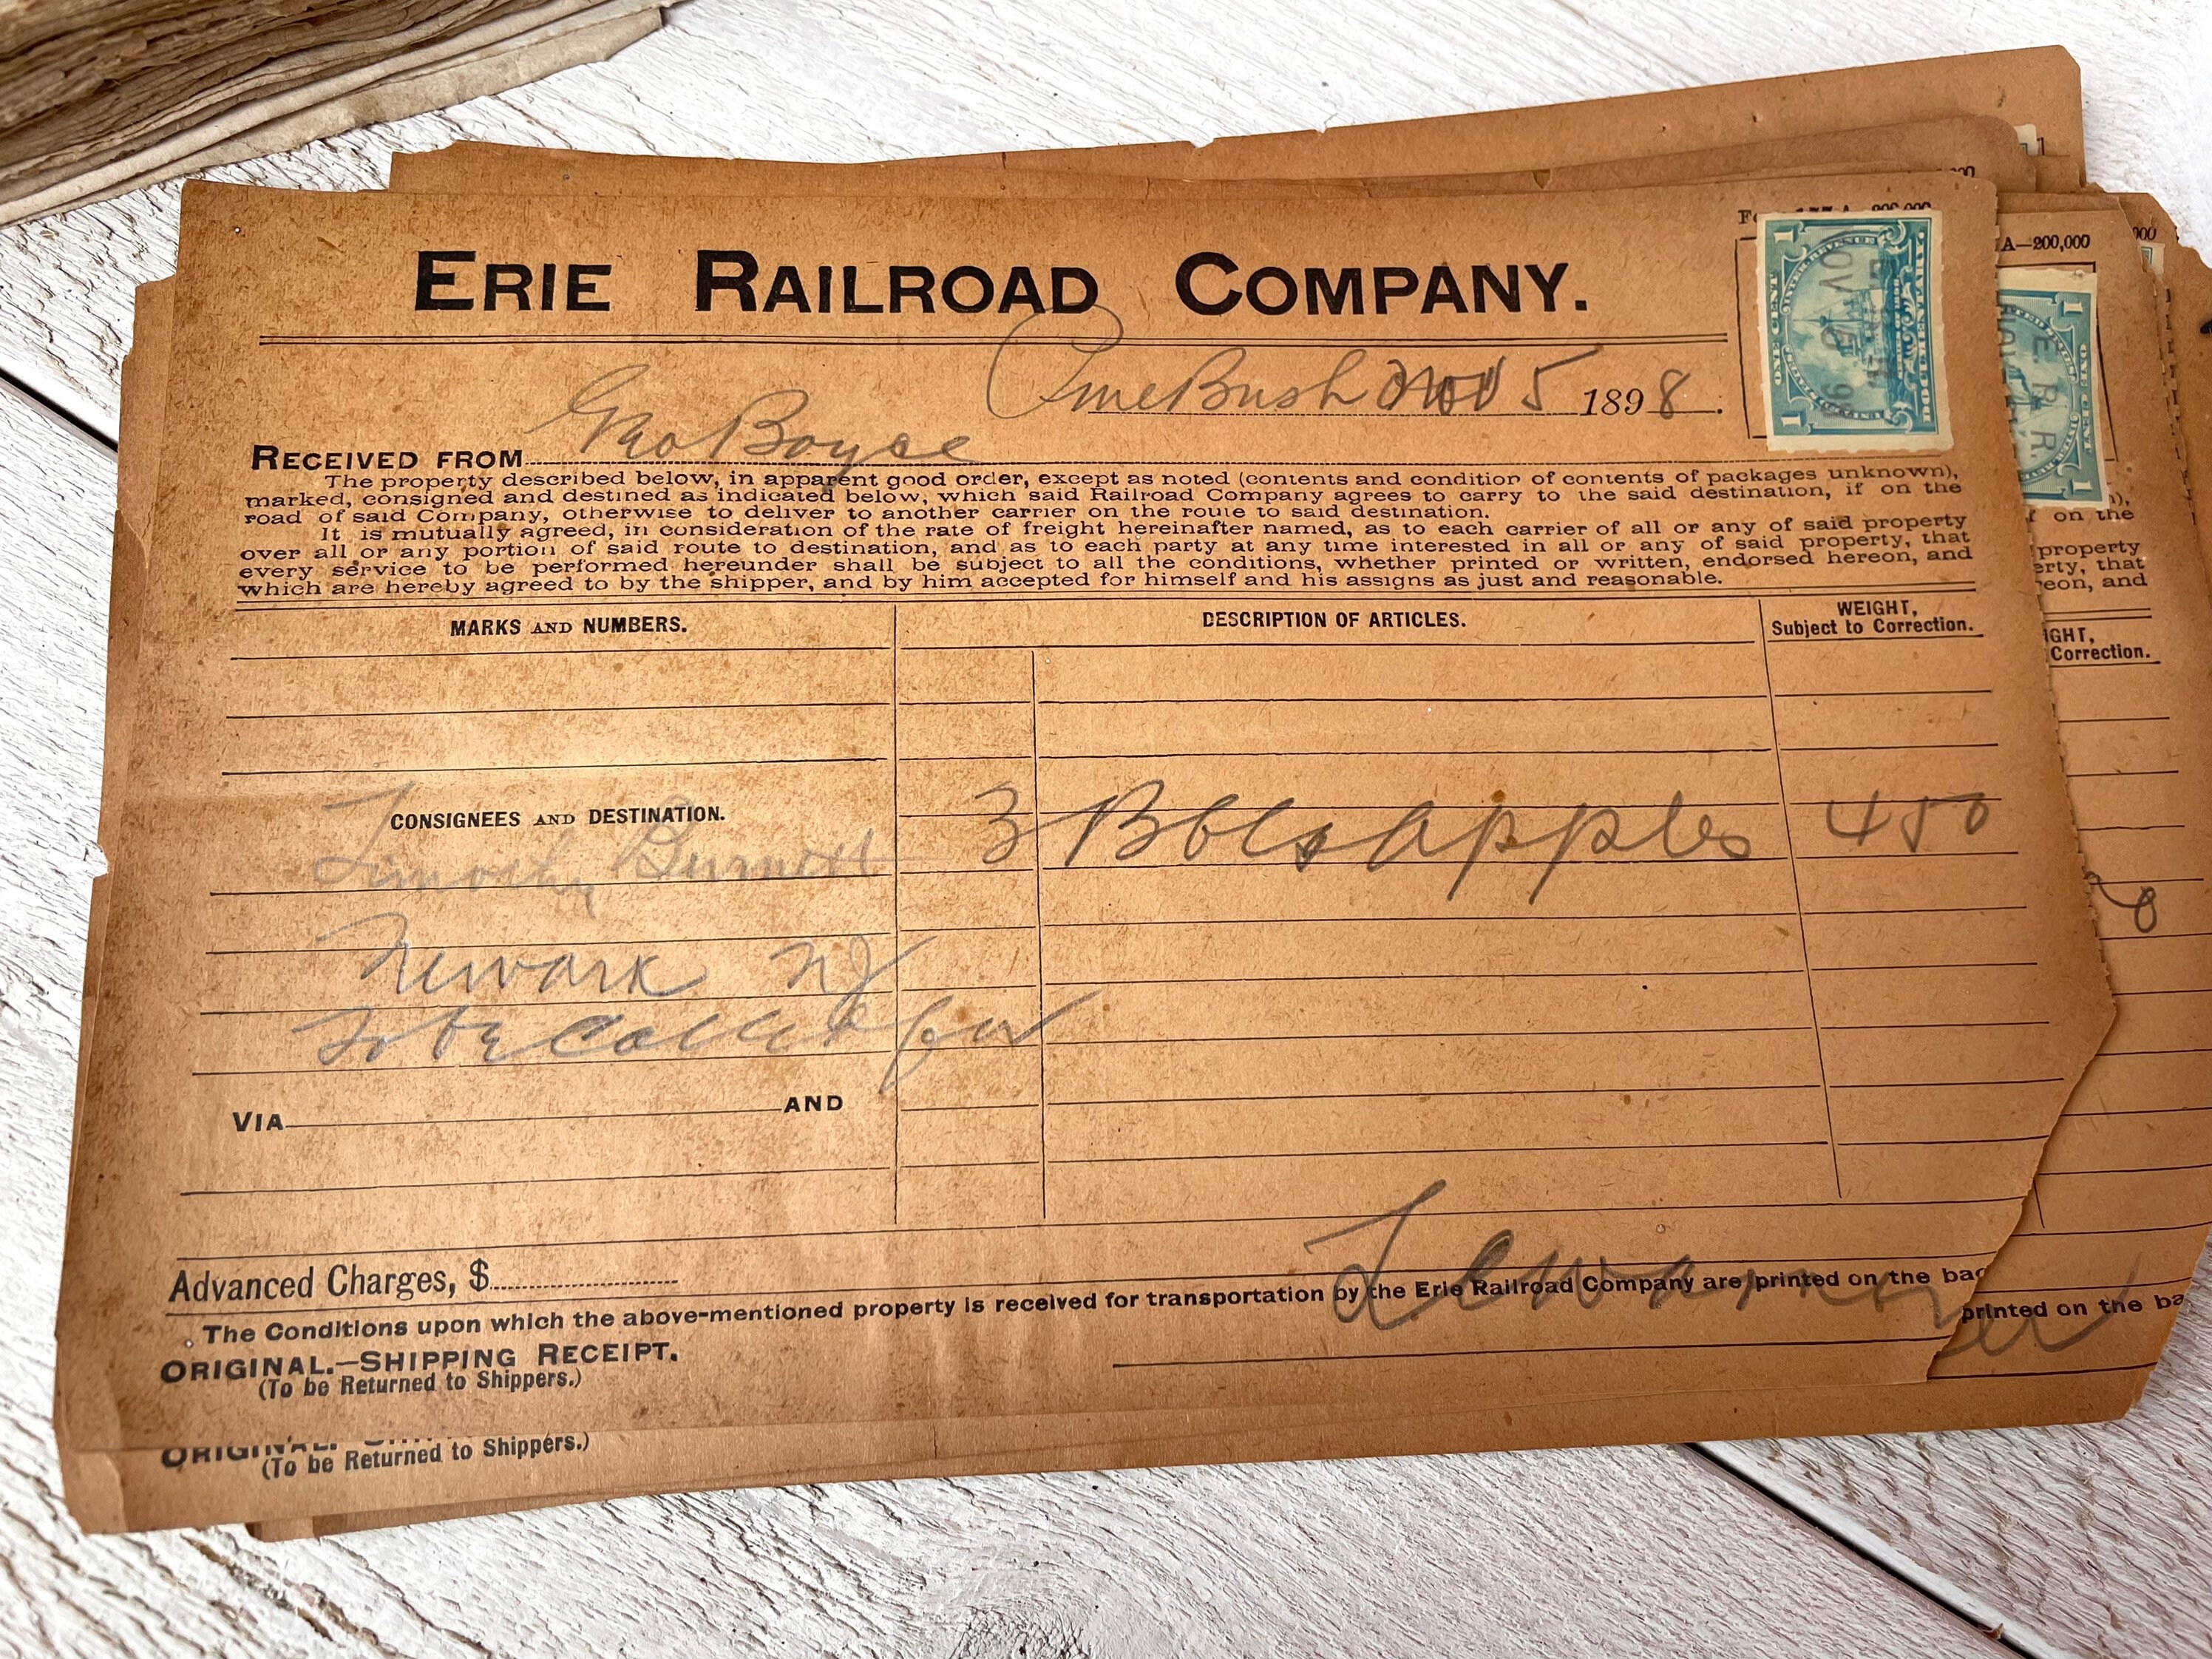 ERIE RAILROAD COMPANY.
Pine Bush Nov 5 1898.
RECEIVED FROM Geo Boyce
The property described below, in apparent good order, except as noted (contents and condition of contents of packages unknown),
marked, consigned and destined as indicated below, which said Railroad Company agrees to carry to the said destination, if on the
road of said Company, otherwise to deliver to another carrier on the route to said destination.
It is mutually agreed, in consideration of the rate of freight hereinafter named, as to each carrier of all or any of said property
over all or any portion of said route to destination, and as to each party at any time interested in all or any of said property, that
every service to be performed hereunder shall be subject to all the conditions, whether printed or written, endorsed hereon, and
which are hereby agreed to by the shipper, and by him accepted for himself and his assigns as just and reasonable.
MARKS AND NUMBERS. DESCRIPTION OF ARTICLES. WEIGHT,
Subject to Correction.
CONSIGNEES AND DESTINATION.
3 Bbls apples 450
Timothy Burnett
Newark NJ
To be Called for
VIA AND
Advanced Charges, $
The Conditions upon which the above-mentioned property is received for transportation by the Erie Railroad Company are printed on the bac
ORIGINAL.—SHIPPING RECEIPT.
(To be Returned to Shippers.)
(To be Returned to Shippers.)
ONE CENT
1
1
A—200,000
E. R. R.
ONE CENT
1
on the
property
that
eon, and
Correction.
printed on the ba